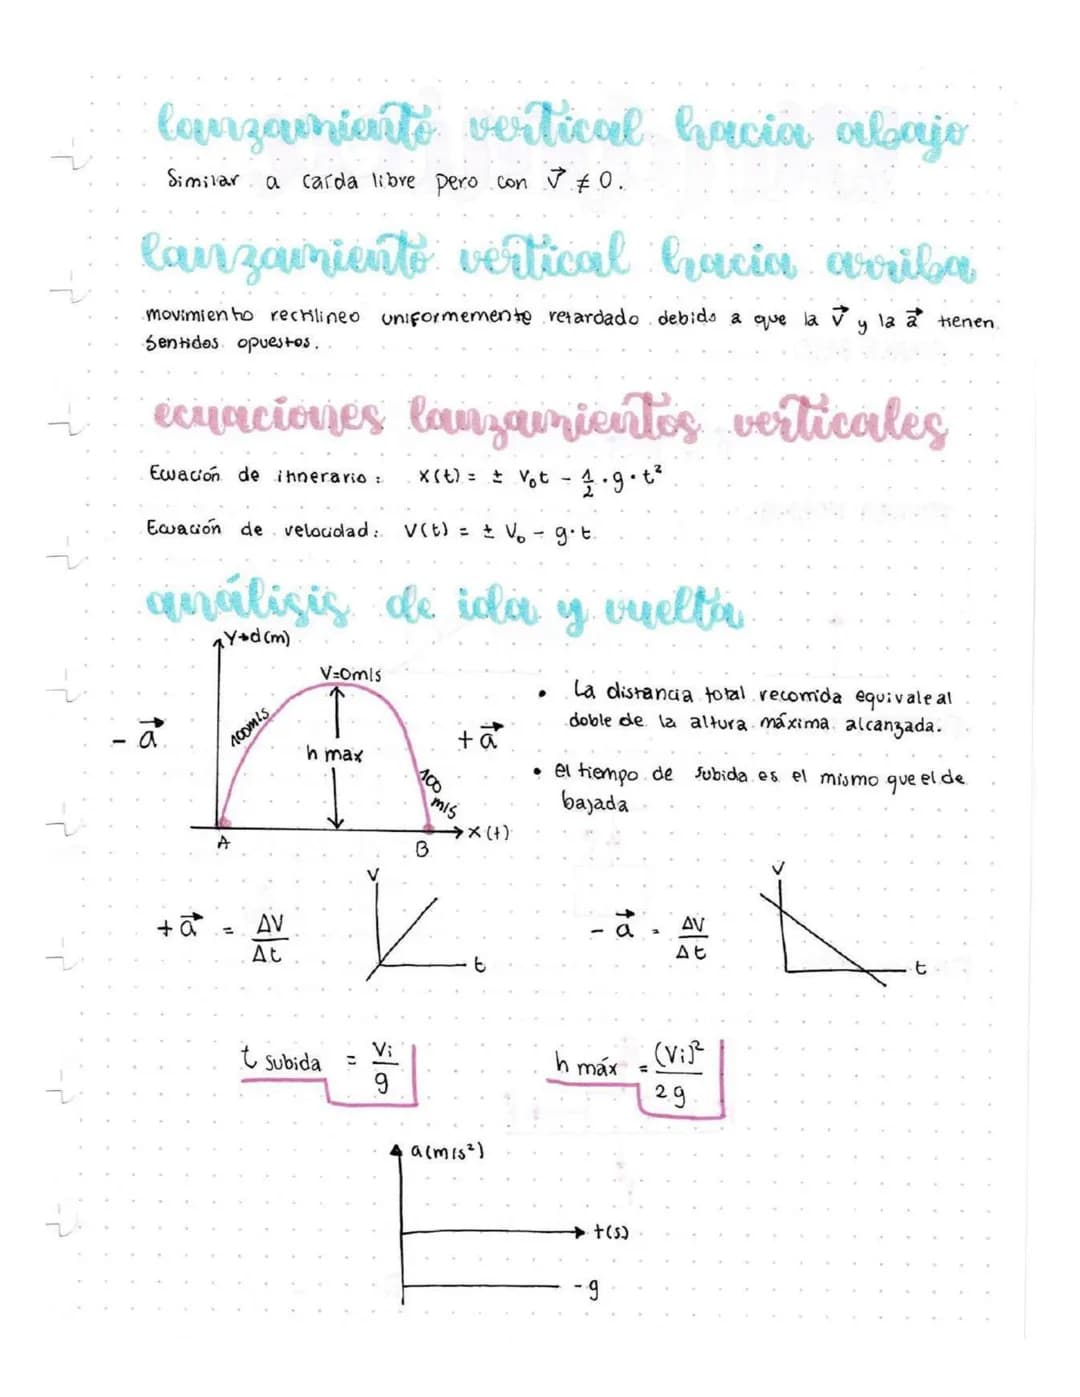 lanzamiento vertical hacia abajo
Similar a caída libre pero con v⃗ ≠ 0.
lanzamiento vertical hacia arriba
movimiento rectilineo uniformemente retardado debido a que la v⃗ y la a⃗ tienen
sentidos opuestos.
ecuaciones lanzamientos verticales
Ecuación de itinerario: x(t) = ± V₀t - 1/2 · g · t²
Ecuación de velocidad: V(t) = ± V₀ - g · t
análisis de ida y vuelta
Y→d(m)
V=0m/s
100m/s
- a⃗
h max
+ a⃗
100
m/s
A
B
x(t)
• La distancia total recorrida equivale al
doble de la altura máxima alcanzada.
• el tiempo de subida es el mismo que el de
bajada
+ a⃗ = ΔV/Δt
V
t
- a⃗ = ΔV/Δt
V
t
t subida = Vi/g
h máx = (Vi)²/2g
a(m/s²)
t(s)
-g